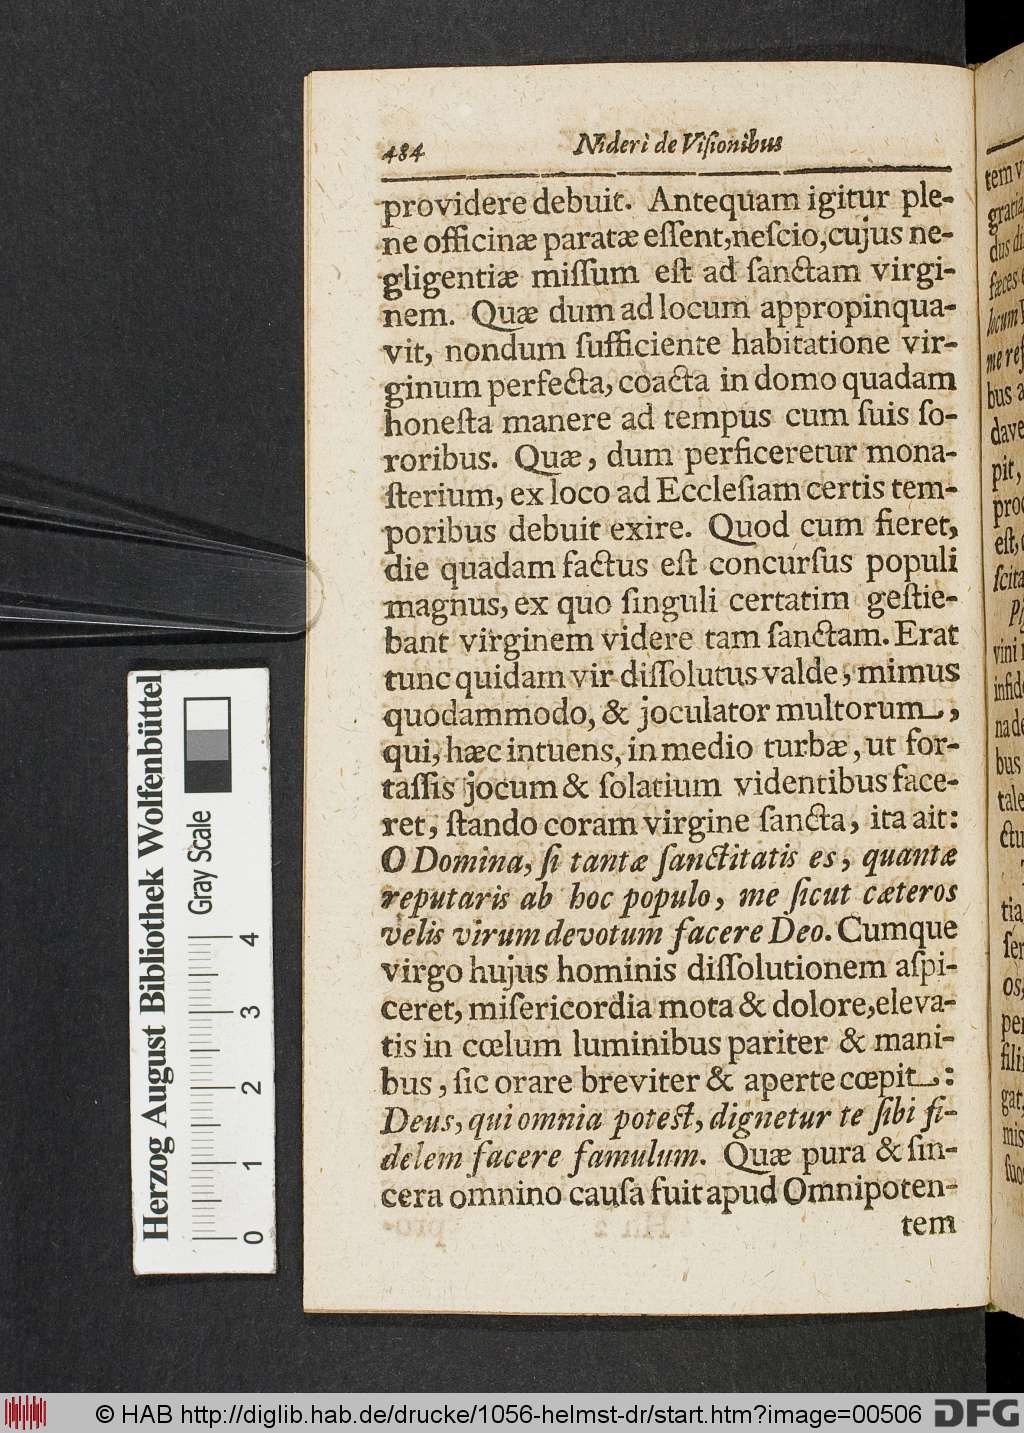 484 Nideri de Viſionibus
providere debuit. Antequam igitur ple-
ne officinæ paratæ eſſent, neſcio, cujus ne-
gligentiæ miſſum eſt ad ſanctam virgi-
nem. Quæ dum ad locum appropinqua-
vit, nondum ſufficiente habitatione vir-
ginum perfecta, coacta in domo quadam
honeſta manere ad tempus cum ſuis ſo-
roribus. Quæ, dum perficeretur mona-
ſterium, ex loco ad Eccleſiam certis tem-
poribus debuit exire. Quod cum fieret,
die quadam factus eſt concurſus populi
magnus, ex quo ſinguli certatim geſtie-
bant virginem videre tam ſanctam. Erat
tunc quidam vir diſſolutus valde, mimus
quodammodo, & joculator multorum,
qui, hæc intuens, in medio turbæ, ut for-
taſſis jocum & ſolatium videntibus face-
ret, ſtando coram virgine ſancta, ita ait:
O Domina, ſi tantæ ſanctitatis es, quantæ
reputaris ab hoc populo, me ſicut cæteros
velis virum devotum facere Deo. Cumque
virgo hujus hominis diſſolutionem aſpi-
ceret, miſericordia mota & dolore, eleva-
tis in cœlum luminibus pariter & mani-
bus, ſic orare breviter & aperte cœpit:
Deus, qui omnia poteſt, dignetur te ſibi fi-
delem facere famulum. Quæ pura & ſin-
cera omnino cauſa fuit apud Omnipoten-
tem
tem
gratia
dus di
fæces
locum
me
bus
dave
pit,
eſt,
ſcita
vini
infid
bus
tale
tia
os,
per
mis
Herzog August Bibliothek Wolfenbüttel
Gray Scale
0 1 2 3 4
© HAB http://diglib.hab.de/drucke/1056-helmst-dr/start.htm?image=00506 DFG